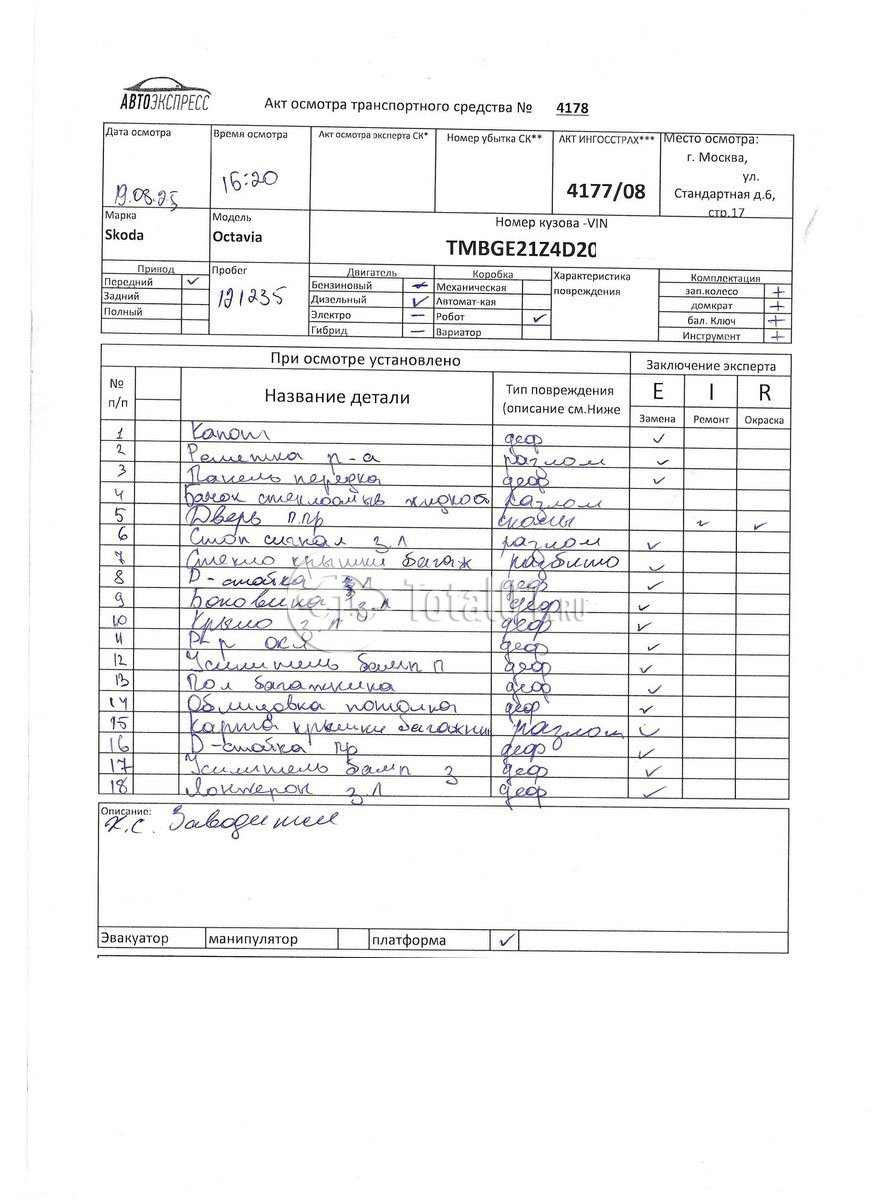 АВТОЭКСПРЕСС
Акт осмотра транспортного средства № 4178
Дата осмотра
19.08.25
Время осмотра
16:20
Акт осмотра эксперта СК*
Номер убытка СК**
АКТ ИНГОССТРАХ***
4177/08
Место осмотра:
г. Москва,
ул.
Стандартная д.6,
стр.17
Марка
Skoda
Модель
Octavia
Номер кузова -VIN
TMBGE21Z4D20
Привод
Передний ✓
Задний
Полный
Пробег
121235
Двигатель
Бензиновый –
Дизельный ✓
Электро –
Гибрид –
Коробка
Механическая
Автомат-кая
Робот ✓
Вариатор
Характеристика
повреждения
Комплектация
зап.колесо +
домкрат +
бал. Ключ +
Инструмент +
При осмотре установлено
Заключение эксперта
№
п/п
Название детали
Тип повреждения
(описание см.Ниже
E I R
Замена Ремонт Окраска
1 Капот деф ✓
2 Решетка р-а разлом ✓
3 Панель передка деф ✓
4 Бачок жидкост разлом
5 Дверь п.пр ✓ ✓
6 Стоп сигнал з.л разлом ✓
7 Стекло крышки багаж разбито ✓
8 D-стойка л деф ✓
9 Боковина з.л деф ✓
10 Крыло з.л деф ✓
11 деф ✓
12 Усилитель бамп п деф ✓
13 Пол багажника деф ✓
14 Облицовка потолка деф ✓
15 Карта крышки багажни разлом ✓
16 D-стойка пр деф ✓
17 Усилитель бамп з деф ✓
18 Лонжерон з.л деф ✓
TotalCar.RU
Описание:
х.с. Заводится
Эвакуатор манипулятор платформа ✓